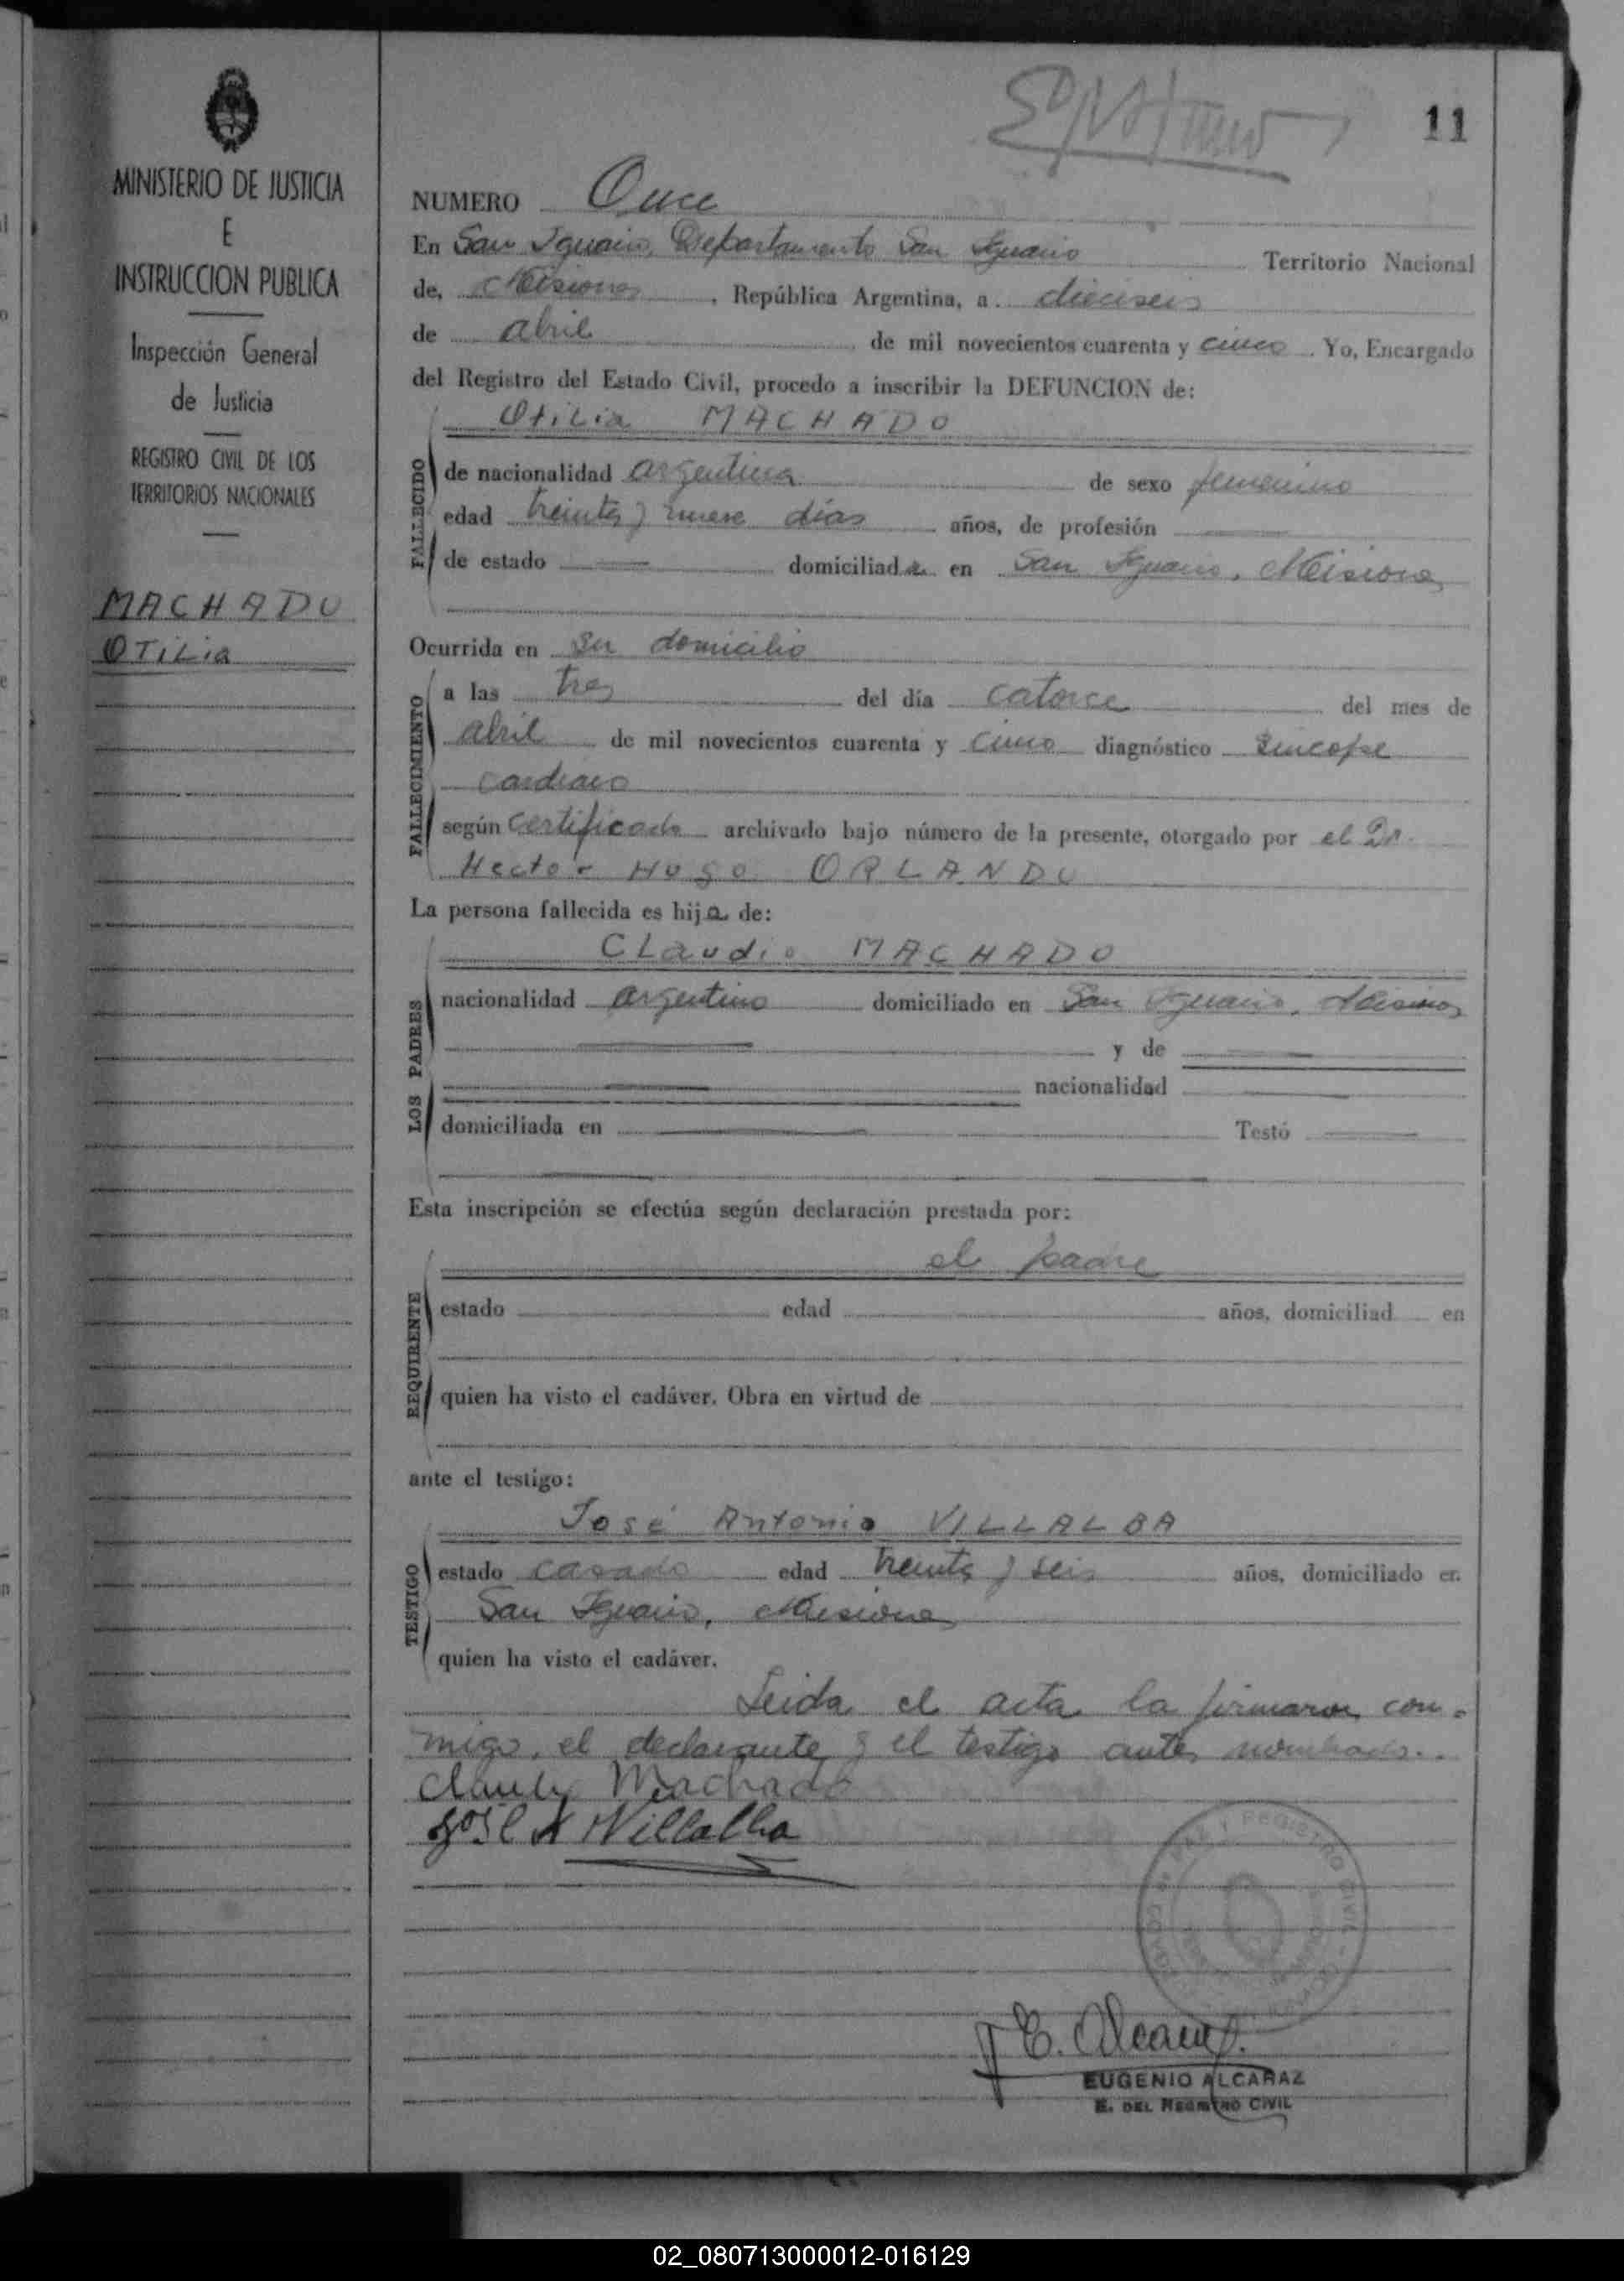 11
MINISTERIO DE JUSTICIA
E
INSTRUCCION PUBLICA
Inspección General
de Justicia
REGISTRO CIVIL DE LOS
TERRITORIOS NACIONALES
MACHADO
OTILIA
NUMERO Once
En San Ignacio, Departamento San Ignacio Territorio Nacional
de, Misiones, República Argentina, a. dieciseis
de abril de mil novecientos cuarenta y cinco. Yo, Encargado
del Registro del Estado Civil, procedo a inscribir la DEFUNCION de:
Otilia MACHADO
FALLECIDO
de nacionalidad argentina de sexo femenino
edad treinta y nueve días años, de profesión
de estado domiciliada en San Ignacio, Misiones
Ocurrida en su domicilio
FALLECIMIENTO
a las tres del día catorce del mes de
abril de mil novecientos cuarenta y cinco diagnóstico Sincope
cardiaco
según certificado archivado bajo número de la presente, otorgado por el Dr.
Hector Hugo ORLANDO
La persona fallecida es hija de:
LOS PADRES
Claudio MACHADO
nacionalidad argentino domiciliado en San Ignacio, Misiones
y de
nacionalidad
domiciliada en Testó
Esta inscripción se efectúa según declaración prestada por:
REQUIRENTE
el padre
estado edad años, domiciliad en
quien ha visto el cadáver. Obra en virtud de
ante el testigo:
TESTIGO
José Antonio VILLALBA
estado casado edad treinta y seis años, domiciliado en
San Ignacio, Misiones
quien ha visto el cadáver.
Leida el acta la firmaron con-
migo, el declarante y el testigo antes nombrado..
Machado
José A Villalba
REGISTRO CIVIL
E. Alcaraz
EUGENIO ALCARAZ
E. DEL REGISTRO CIVIL
02_080713000012-016129